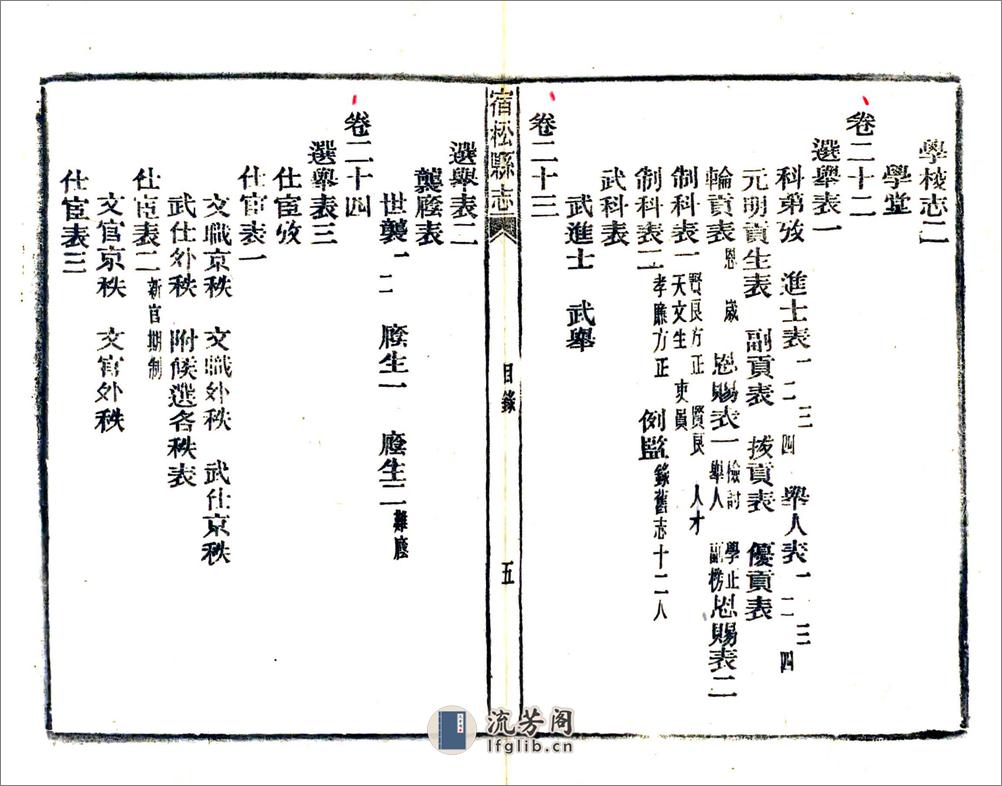 學校志二
學堂
卷二十二
選舉表一
科第攷 進士表一二三四 舉人表一二三四
元明貢生表 副貢表 拔貢表 優貢表
輪貢表恩歲 恩賜表一檢討學正舉人副榜 恩賜表二
制科表一賢良方正賢良人才天文生吏員
制科表二孝廉方正 例監錄舊志十二人
武科表
武進士 武舉
卷二十三
宿松縣志
目錄
五
選舉表二
襲廕表
世襲一二 廕生一 廕生二難廕
卷二十四
選舉表三
仕宦攷
仕宦表一
文職京秩 文職外秩 武仕京秩
武仕外秩 附候選各秩表
仕宦表二新官制期
文官京秩 文官外秩
仕宦表三
流芳阁
lfglib.cn